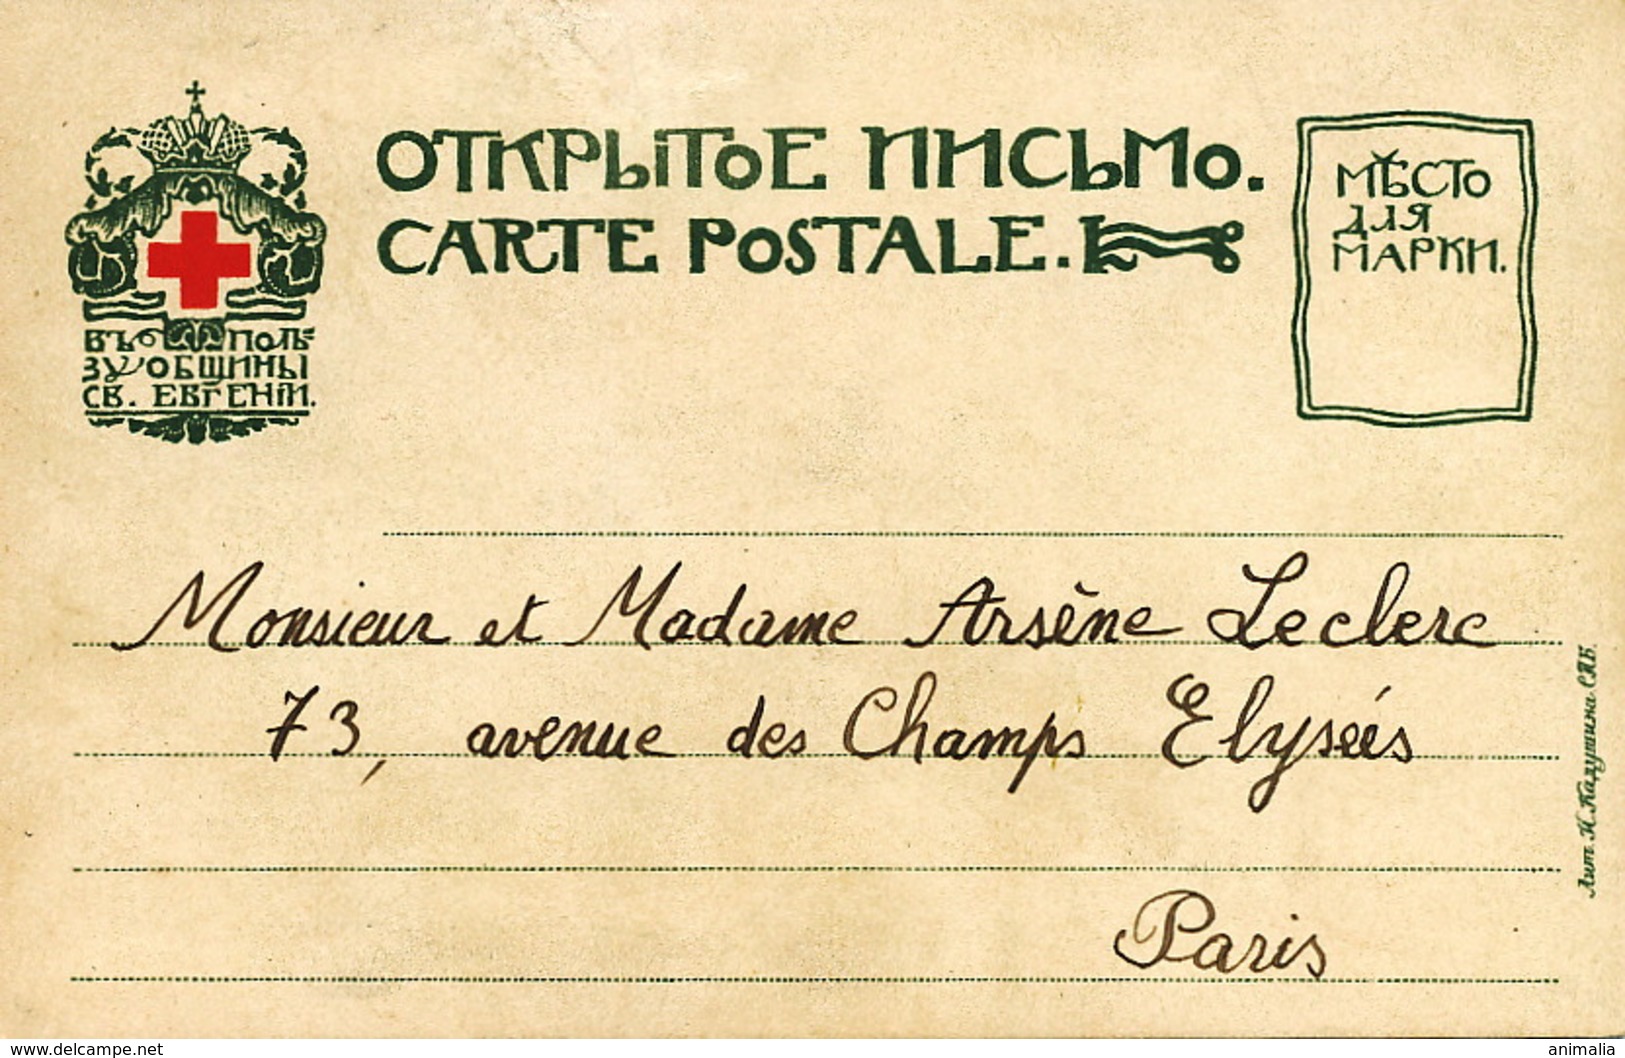 ОТКРЫТОЕ ПИСЬМО.
CARTE POSTALE.
МѢСТО
ДЛЯ
МАРКИ.
ВЪ ПОЛЬ=
ЗУ ОБЩИНЫ
СВ. ЕВГЕНІИ.
Monsieur et Madame Arsène Leclerc
73, avenue des Champs Elyseés
Paris
Лит. Н. Кадушина С.П.Б.
www.delcampe.net
animalia